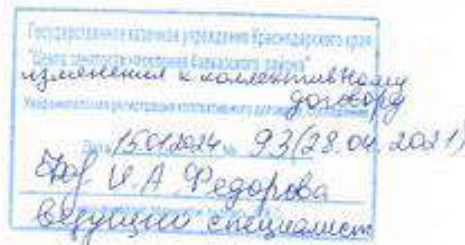 Государственное казенное учреждение Краснодарского края
"Центр занятости населения Кавказского района"
изменения к коллективному
договору
Уведомительная регистрация коллективного договора, соглашения
Дата 15.01.2024 № 93(28.04.2021)
И.А Федорова
ведущий специалист